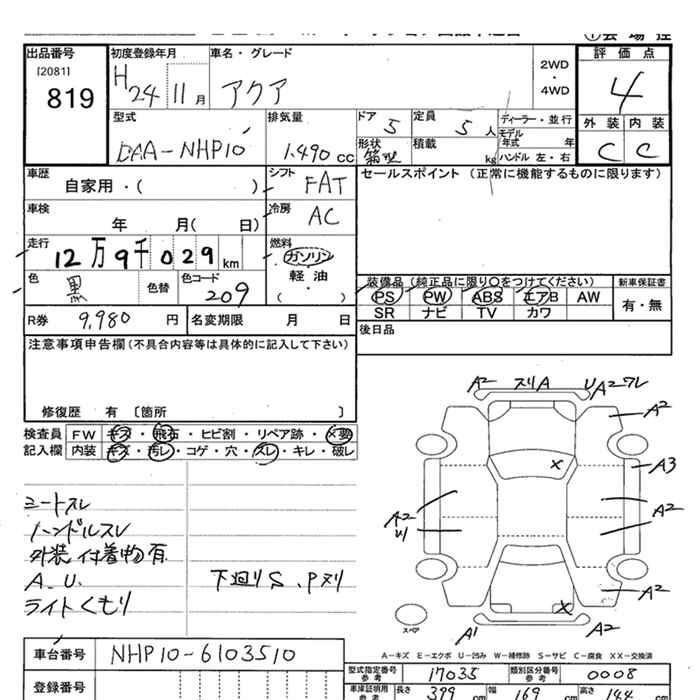 出品番号 初度登録年月 車名・グレード 評価点
[2081]
819
H24 11月 アクア 2WD・4WD 4
型式 排気量 ドア 5 定員 5人 ディーラー・並行 外装 内装
DAA-NHP10 1.490cc 形状 箱型 積載 kg モデル年式 年 ハンドル 左・右 C C
車歴 自家用・( ) シフト FAT セールスポイント (正常に機能するものに限ります)
車検 年 月( 日) 冷房 AC
走行 12万9千029km 燃料 ガソリン
軽油
( ・ )
色 黒 色替 色コード 209
装備品 (純正品に限り○をつけてください) 新車保証書
PS PW ABS エアB AW 有・無
SR ナビ TV カワ
R券 9,980円 名変期限 月 日 後日品
注意事項申告欄(不具合内容等は具体的に記入して下さい)
修復歴 有 〔箇所 〕
検査員 FW キズ・飛石・ヒビ割・リペア跡・×要
記入欄 内装 キズ・汚レ・コゲ・穴・スレ・キレ・破レ
A2 スリA UA2ワレ
A2
A3
A2
A2
シートスレ
ハンドルスレ
外装付着物有
A.U. 下廻りS、Pヌリ
ライトくもり
A2
スペア A1 A2
A-キズ E-エクボ U-凹み W-補修跡 S-サビ C-腐食 XX-交換済
車台番号 NHP10-6103510
型式指定番号 参考 17035 類別区分番号 参考 0008
登録番号 車庫証明用 参考 長さ 399cm 幅 169cm 高さ 144cm